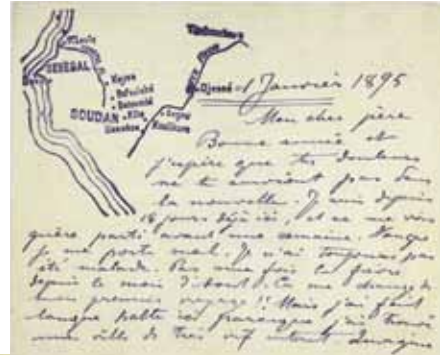 Tombouctou
SENEGAL
Kayes
Bafoulabé
SOUDAN Kita
Djenné
Segou
1 Janvier 1895
Mon cher père
Bonne année et
j'espère que tes douleurs
ne te envoient pas dans
la nouvelle. Je suis depuis
18 jours déjà ici, et ne me vois
guère parti avant une semaine.
je me porte mal. Je n'ai toujours pas
été malade. Pas une fois la fièvre
depuis le mois d'août. Ca me change de
mon premier voyage!! Mais j'ai fait
longue halte ici parceque j'ai trouvé
une ville de très vif intérêt